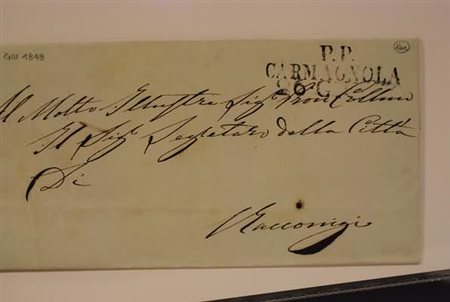 GIU 1848
P.P.
CARMAGNOLA
26 G
Al Molto Illustre Sig.r
Il Sig.r Segretaro della Città
Di
Racconigi